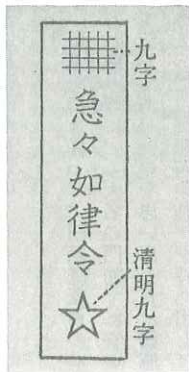 九字
急々如律令
清明九字